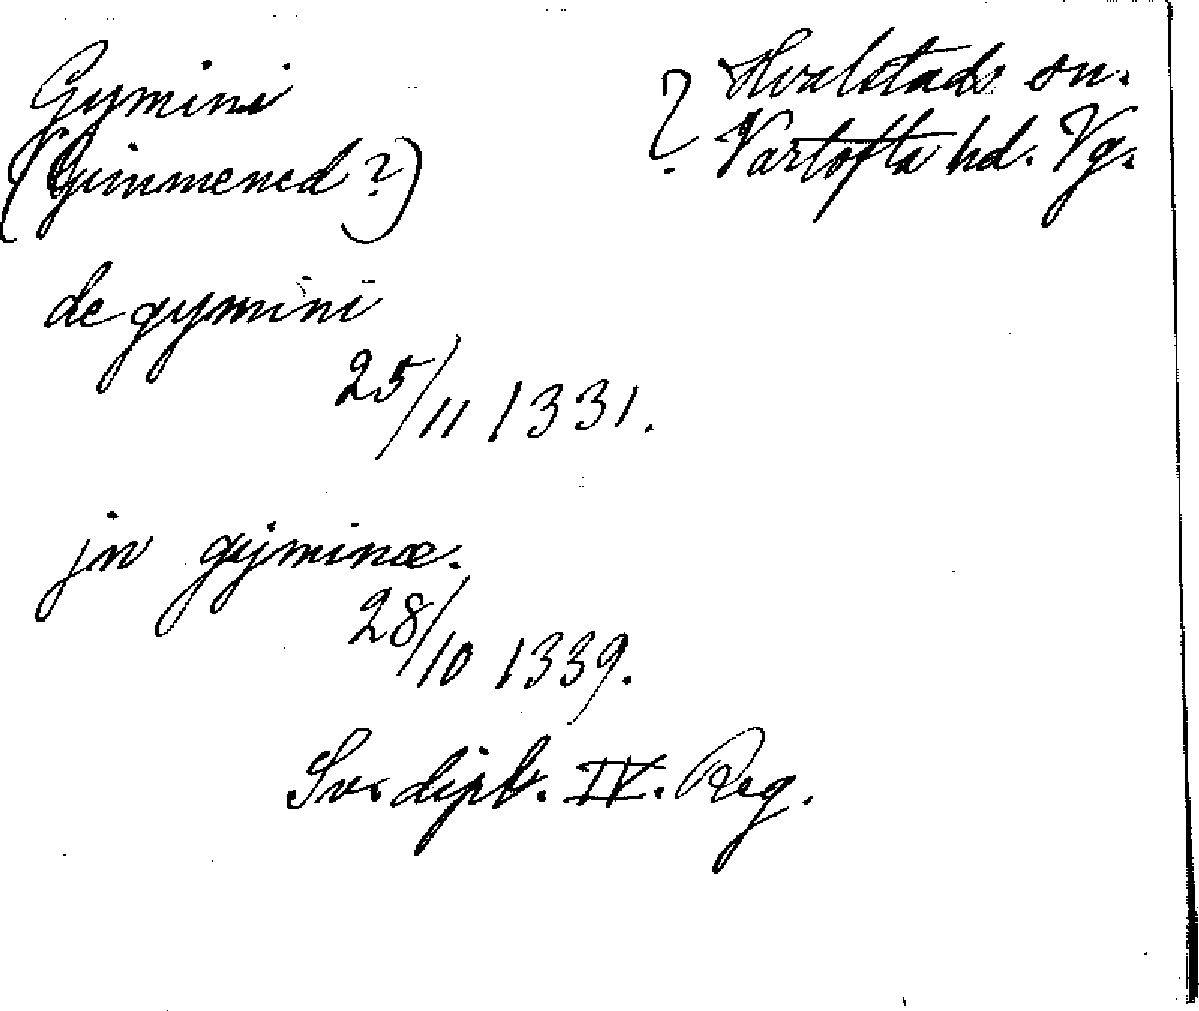 Gymini
(Gimmened?)
? Hvalstads sn.
Vartofta hd. Vg.
de gymini
25/11 1331.
jn gyminæ.
28/10 1339.
Sv. dipl. IV. Reg.